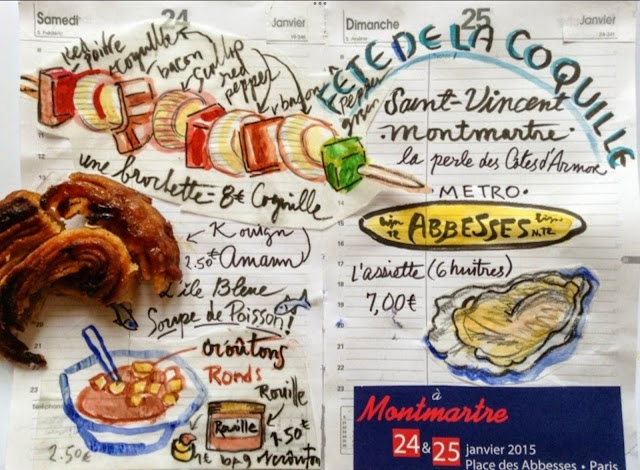 Samedi 24 Janvier
Dimanche 25 Janvier
FÊTE DE LA COQUILLE
poivre
coquille
bacon
scallop
red
pepper
bacon
pepper
green
une brochette = 8€ Coquille
Saint-Vincent
Montmartre.
la perle des Côtes d'Armor
METRO.
ABBESSES
Kouign
2.50€ Amann
L'île Bleue
Soupe de Poisson!
croûtons
Ronds
Rouille
Rouille
1.50€
2.50€
1€ bag
L'assiette (6 huîtres)
7,00€
à
Montmartre
24 & 25 janvier 2015
Place des Abbesses • Paris